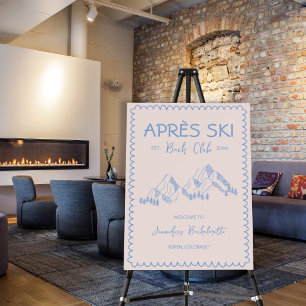 APRÈS SKI
EST. Beck Club 20XX
WELCOME TO
Jennifers Bachelorette
ASPEN, COLORADO